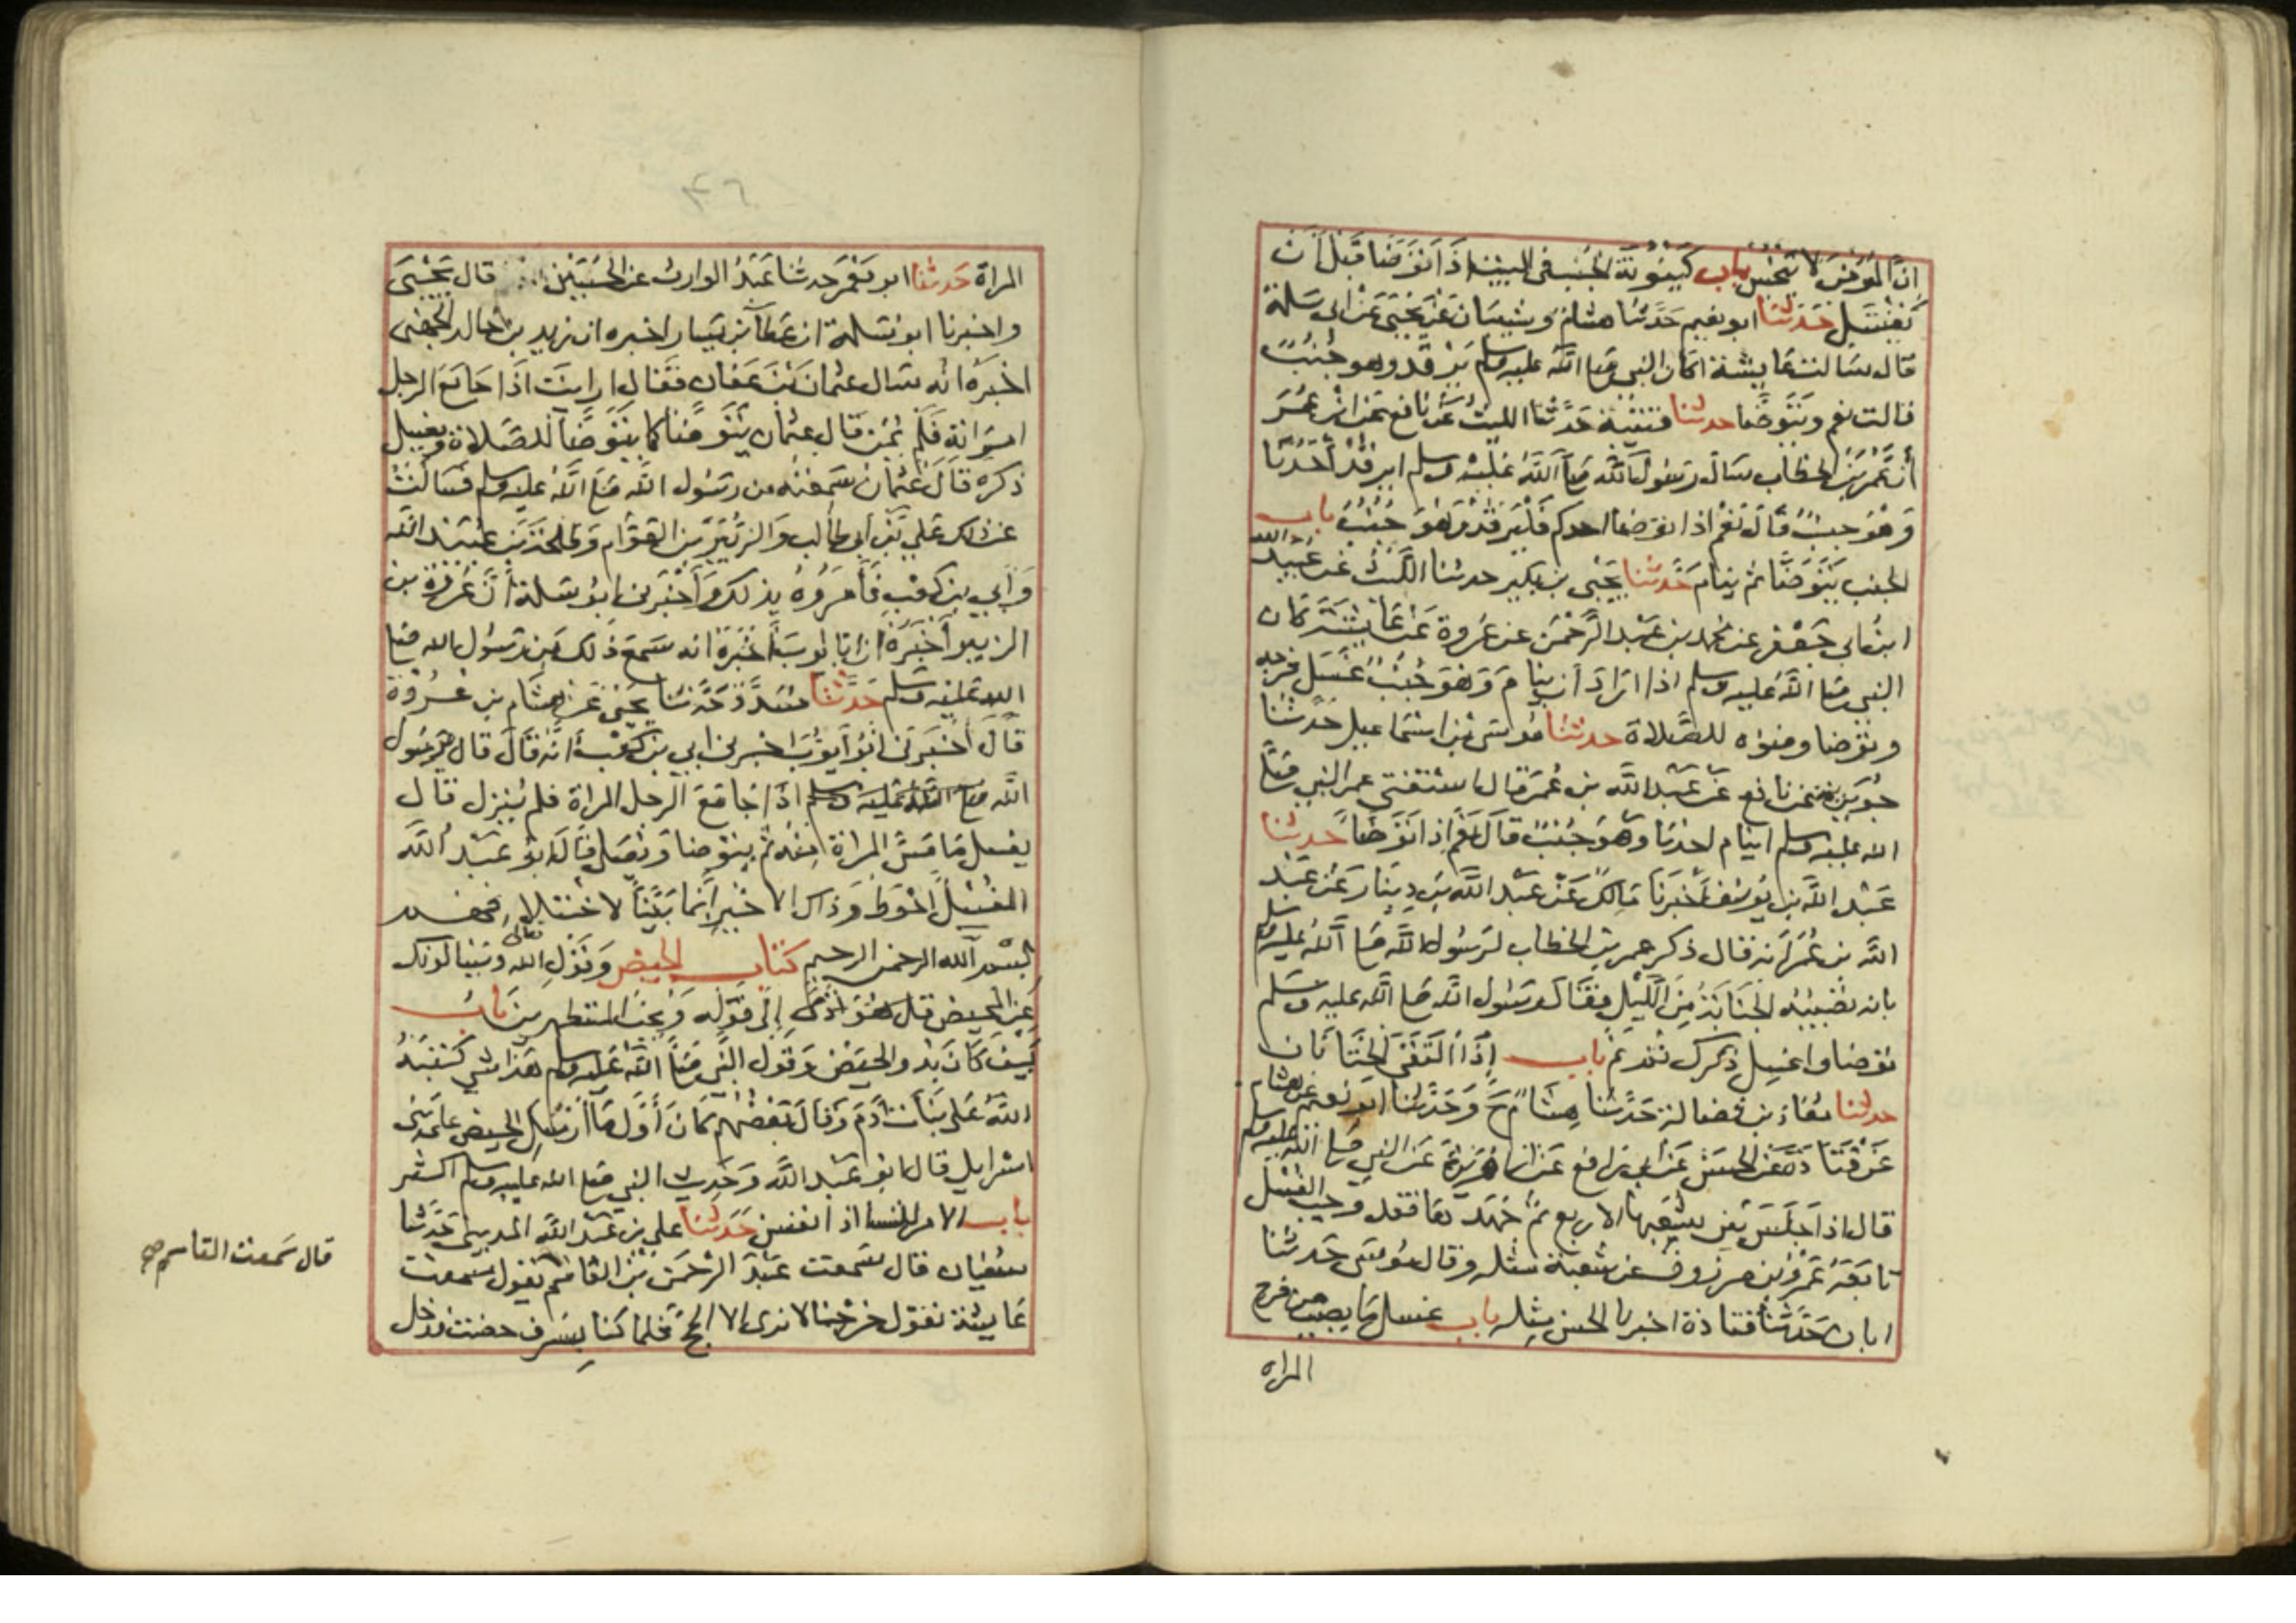 ان المؤمن لا ينجس باب كينونة الجنب في البيت اذا توضا قبل ان
يغتسل حدثنا ابو نعيم حدثنا هشام وشيبان عن يحيى عن ابي سلمة
قال سالت عايشة اكان النبي صلى الله عليه وسلم يرقد وهو جنب
قالت نعم ويتوضا حدثنا قتيبة حدثنا الليث عن نافع عن ابن عمر
أن عمر بن الخطاب سال رسول الله صلى الله عليه وسلم ايرقد احدنا
وهو جنب قال نعم اذا توضا احدكم فليرقد وهو جنب باب
الجنب يتوضا ثم ينام حدثنا يحيى بن بكير حدثنا الليث عن عبيد الله
ابن ابي جعفر عن محمد بن عبد الرحمن عن عروة عن عايشة كان
النبي صلى الله عليه وسلم اذا اراد أن ينام وهو جنب غسل فرجه
وتوضا وضوه للصلاة حدثنا موسى بن اسماعيل حدثنا
جويرية عن نافع عن عبد الله بن عمر قال استفتى عمر النبي صلى
الله عليه وسلم اينام احدنا وهو جنب قال نعم اذا توضا حدثنا
عبد الله بن يوسف أخبرنا مالك عن عبد الله بن دينار عن عبد
الله بن عمر انه قال ذكر عمر بن الخطاب لرسول الله صلى الله عليه وسلم
بانه تصيبه الجنابة من الليل فقال له رسول الله صلى الله عليه وسلم
توضا واغسل ذكرك ثم نم باب إذا التقى الختانان
حدثنا معاذ بن فضالة حدثنا هشام ح وحدثنا ابو نعيم عن هشام
عن قتادة عن الحسن عن أبي رافع عن ابي هريرة عن النبي صلى الله عليه وسلم
قال اذا جلس بين شعبها الاربع ثم جهدها فقد وجب الغسل
تابعه عمرو بن مرزوق عن شعبة مثله وقال موسى حدثنا
ابان حدثنا قتادة اخبرنا الحسن مثله باب غسل ما يصيب من فرج
المراه
٤٦
المراة حدثنا ابو معمر حدثنا عبد الوارث عن الحسين قال يحيى
واخبرنا ابو سلمة ان عطآ بن يسار اخبره ان زيد بن خالد الجهني
اخبره انه سال عثمان بن عفان فقال ارايت اذا جامع الرجل
امراته فلم يمن قال عثمان يتوضا كما يتوضا للصلاة ويغسل
ذكره قال عثمان سمعته من رسول الله صلى الله عليه وسلم فسالت
عن ذلك علي بن أبي طالب والزبير بن العوام وطلحة بن عبيد الله
وأبي بن كعب فأمروه بذلك وأخبرني ابو سلمة أن عروة بن
الزبير أخبره ان ابا ايوب أخبره انه سمع ذلك من رسول الله صلى
الله عليه وسلم حدثنا مسدد حدثنا يحيى عن هشام بن عروة
قال أخبرني ابي أخبرني ابو ايوب اخبرني ابي بن كعب أنه قال قال يرسول
الله صلى الله عليه وسلم اذا جامع الرجل المراة فلم ينزل قال
يغسل ما مس المراة منه ثم يتوضا ويصلي قال ابو عبد الله
الغسل احوط وذاك الاخير إنما بينا لاختلافهم
بسم الله الرحمن الرحيم كتاب الحيض وقول الله تعالى ويسالونك
عن المحيض قل هو أذى إلى قوله ويحب المتطهرين باب
كيف كان بدو الحيض وقول النبي صلى الله عليه وسلم هذا شي كتبه
الله على بنات ادم وقال بعضهم كان أول ما أرسل الحيض على بنى
اسرايل قال ابو عبد الله وحديث النبي صلى الله عليه وسلم اكثر
باب الامر للنسا اذا نفسن حدثنا علي بن عبد الله المديني حدثنا
سفيان قال سمعت عبد الرحمن بن القاسم يقول سمعت
عايشة تقول خرجنا لا نرى الا الحج فلما كنا بسرف حضت فدخل
قال سمعت القاسم صح